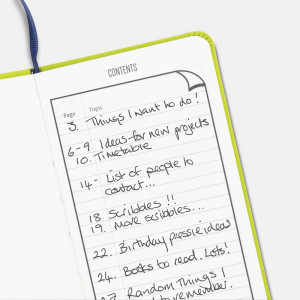 CONTENTS
Page Topic
3. Things I want to do!
6-9 Ideas for new projects
10. Timetable
14- List of people to
contact...
18 Scribbles!!
19. More scribbles....
22. Birthday pressie ideas
24.. Books to read. Lots!
27 Random Things I
to remember!